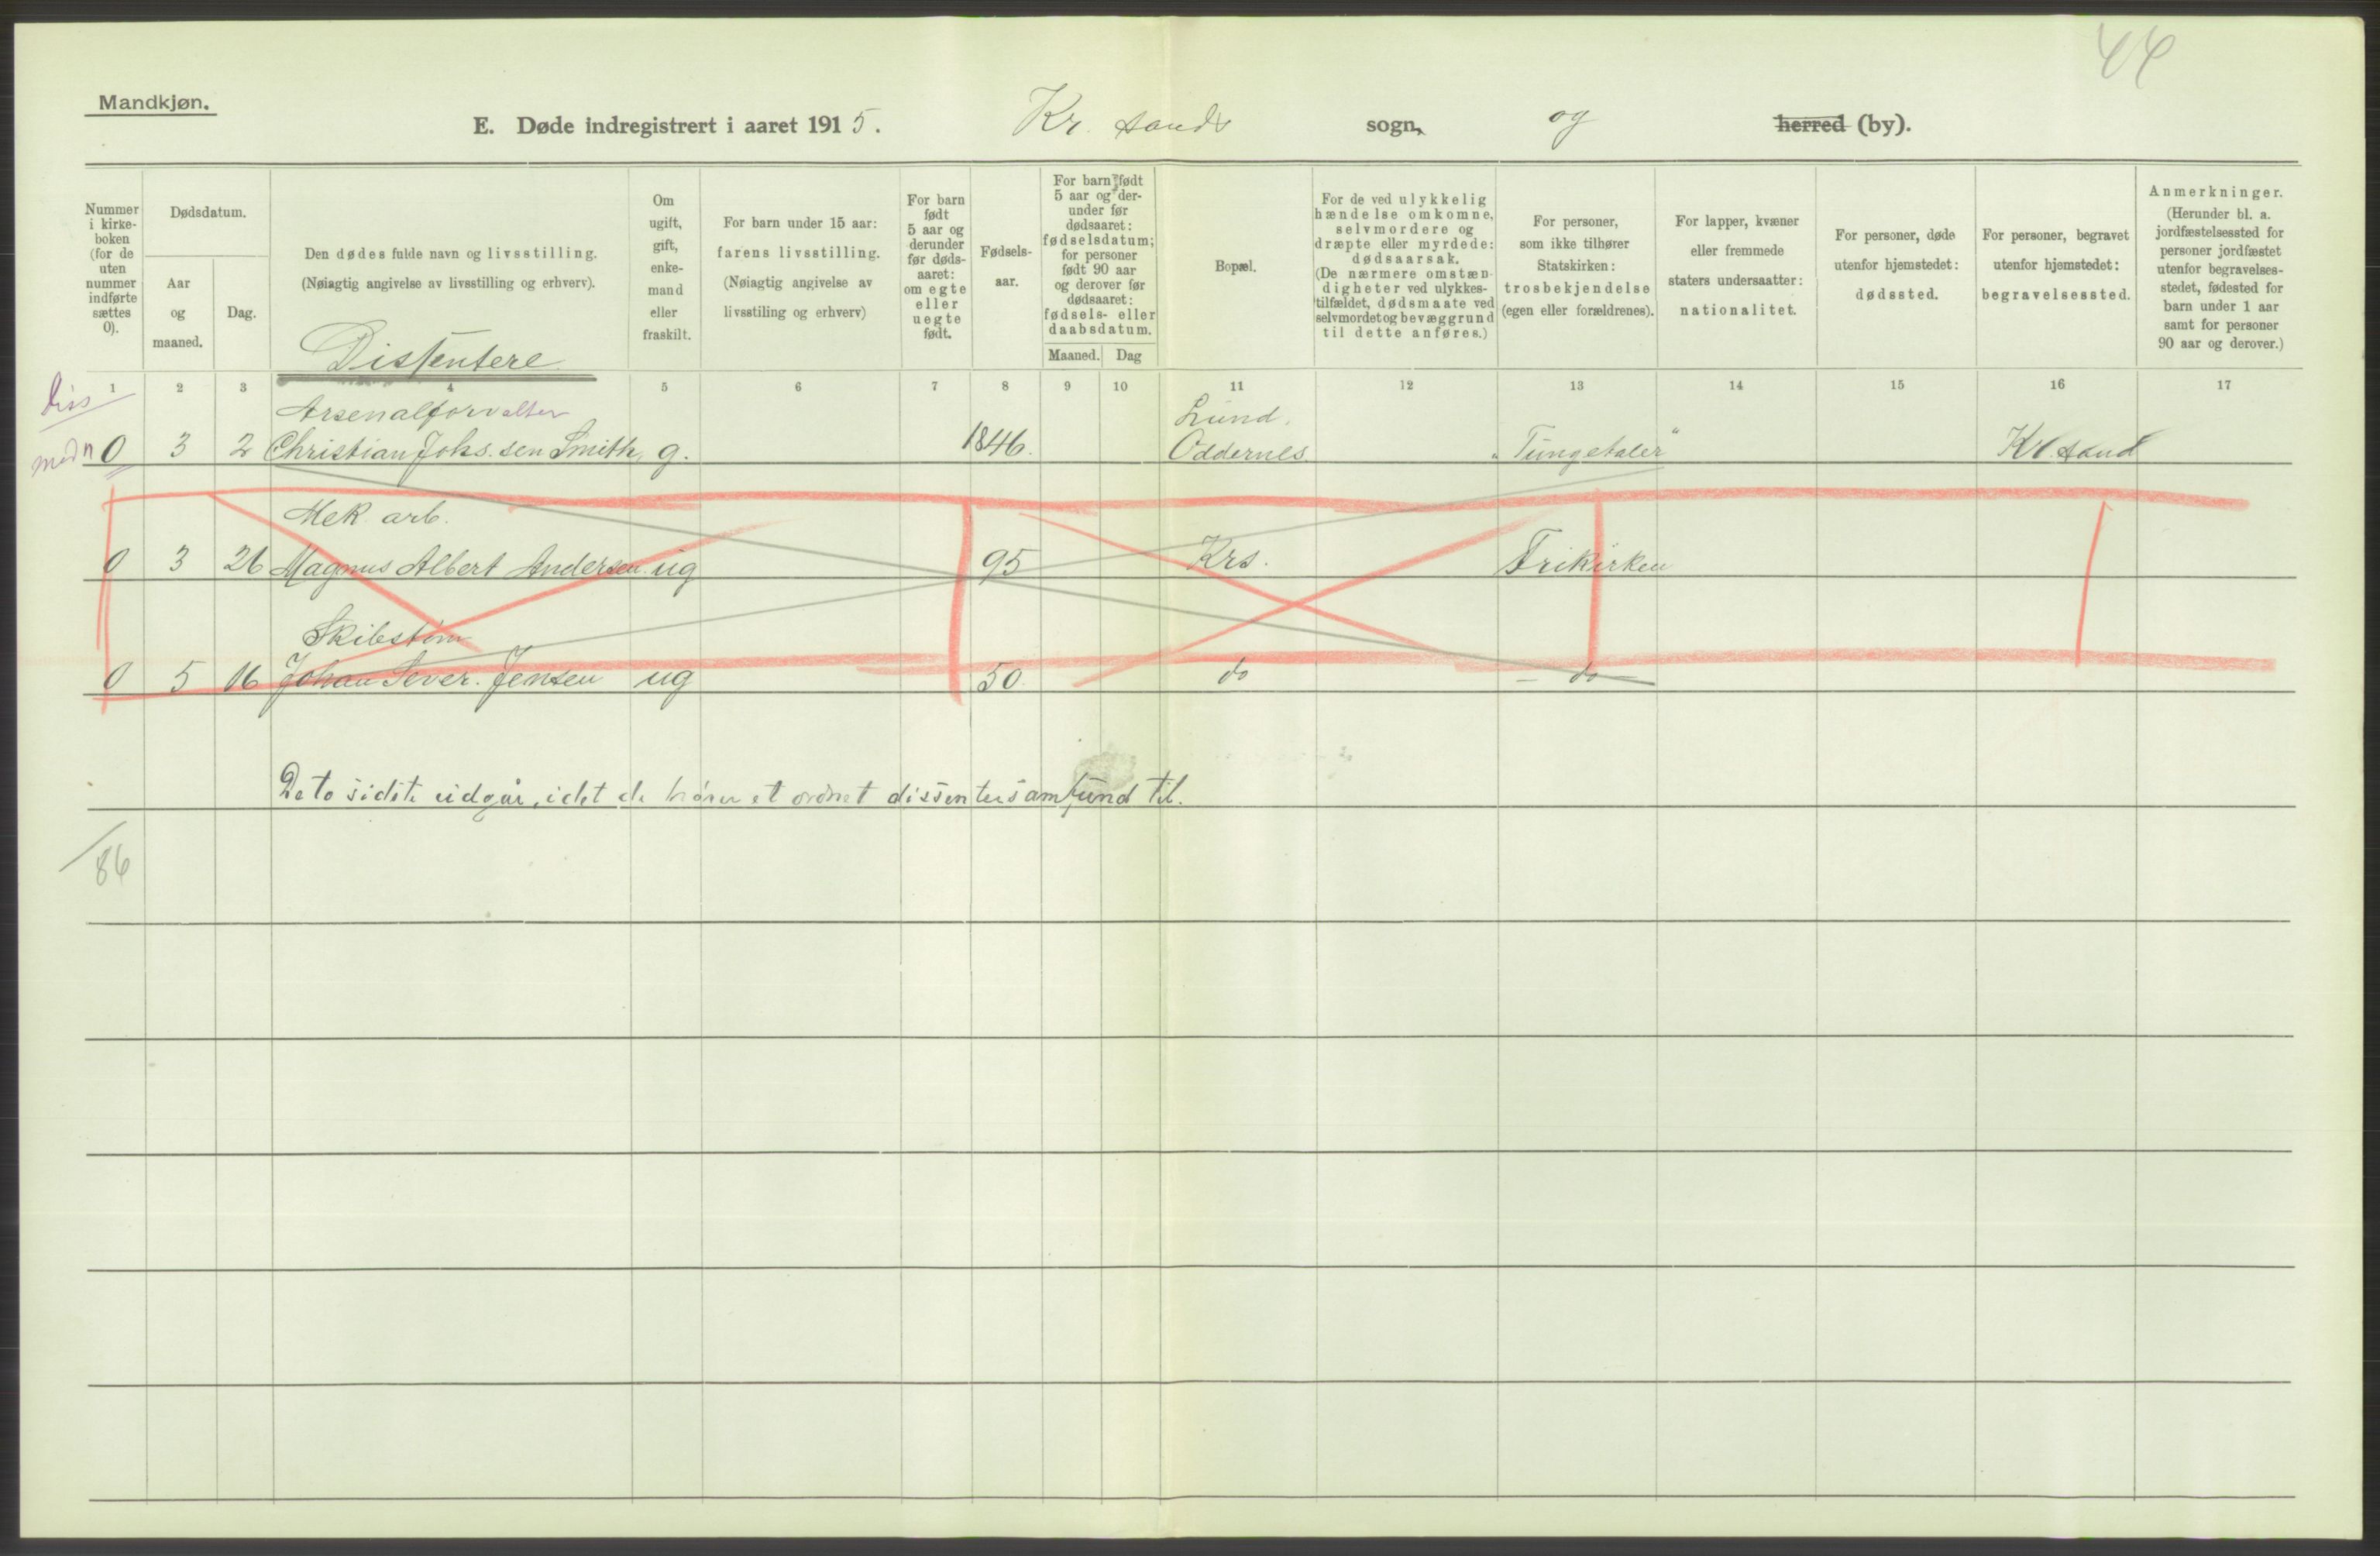 44
Mandkjøn.
E. Døde indregistrert i aaret 1915. Kr. sands sogn, og herred (by).
Nummer i kirke-boken (for de uten nummer indførte sættes 0).
Dødsdatum.
Aar og maaned.
Dag.
Den dødes fulde navn og livsstilling.
(Nøiagtig angivelse av livsstilling og erhverv).
Dissentere
Om ugift, gift, enke-mand eller fraskilt.
For barn under 15 aar: farens livsstilling.
(Nøiagtig angivelse av livsstiling og erhverv)
For barn født 5 aar og derunder før døds-aaret: om egte eller uegte født.
Fødsels-aar.
For barn født 5 aar og der-under før dødsaaret: fødselsdatum; for personer født 90 aar og derover før dødsaaret: fødsels- eller daabsdatum.
Maaned. Dag
Bopæl.
For de ved ulykkelig hændelse omkomne, selvmordere og dræpte eller myrdede: dødsaarsak.
(De nærmere omstæn-digheter ved ulykkes-tilfældet, dødsmaate ved selvmordet og bevæggrund til dette anføres.)
For personer, som ikke tilhører Statskirken: trosbekjendelse (egen eller forældrenes).
For lapper, kvæner eller fremmede staters undersaatter: nationalitet.
For personer, døde utenfor hjemstedet: dødssted.
For personer, begravet utenfor hjemstedet: begravelsessted.
Anmerkninger.
(Herunder bl. a. jordfæstelsessted for personer jordfæstet utenfor begravelses-stedet, fødested for barn under 1 aar samt for personer 90 aar og derover.)
1 2 3 4 5 6 7 8 9 10 11 12 13 14 15 16 17
Diss
Arsenalforvalter Lund.
medn 0 3 2 Christian Johs. sen Smith, g. 1846. Oddernes. "Tungetaler" Kr. sand
Mek. arb.
0 3 26 Magnus Albert Andersen ug 95 Krs. Frikirken
Skibstøm
0 5 16 Johan Sever. Jensen ug 50 do — do —
De to sidste udgår, idet de hører et ordnet dissentersamfund til.
/86